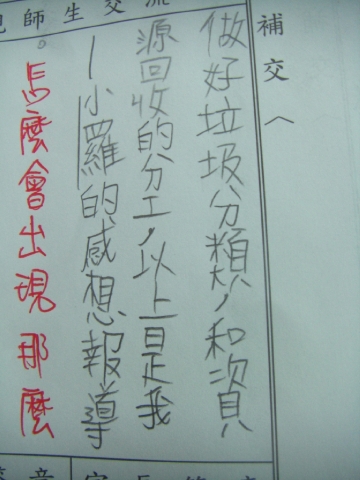 流交生師親
補交へ
做好垃圾分類，和資
源回收的分工，以上是我
—小羅的感想報導
。馬麼會出現那麼